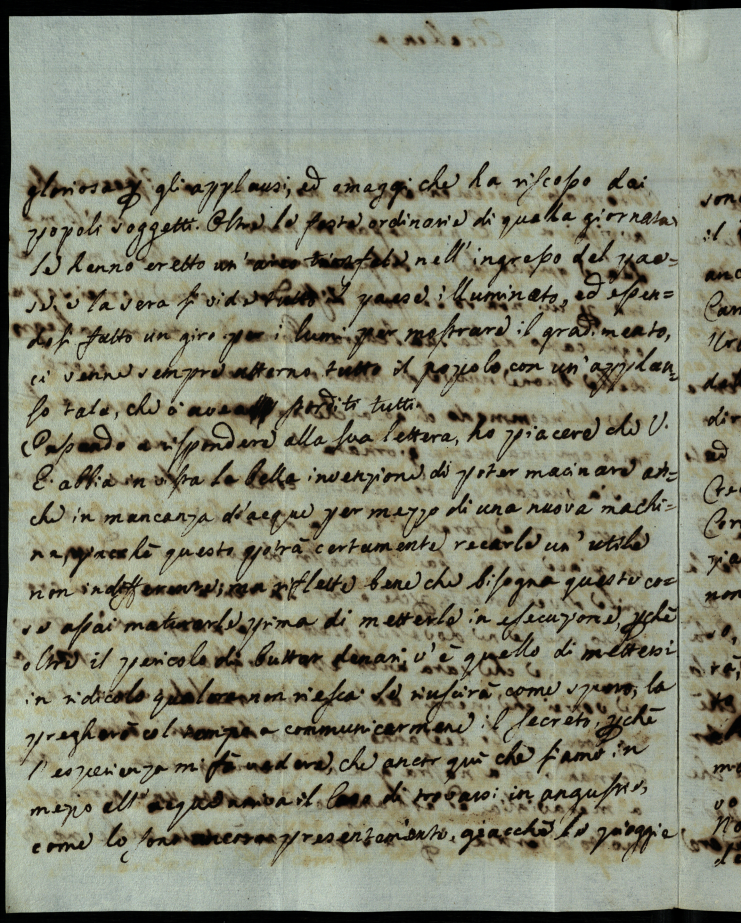 gloriosa p gli applausi, ed omaggi che ha riscosso dai
popoli soggetti. Oltre le feste ordinarie di quella giornata
le hanno eretto un' arco trionfale nell' ingresso del pae=
se e la sera si vide tutto il paese illuminato, ed essen=
dosi fatto un giro per i lumi per mostrare il gradimento,
ci venne sempre attorno tutto il popolo con un' applau=
so tale, che ci aveva storditi tutti.
Passando a rispondere alla sua lettera, ho piacere che V.
E. abbia in vista la bella invenzione di poter macinare an=
che in mancanza d'acque per mezzo di una nuova machi=
na, giacchè questo potrà certamente recarle un' utile
non indifferente; ma rifletta bene che bisogna queste co=
se assai maturarle prima di metterle in esecuzione, pchè
oltre il pericolo di buttar denari v'è quello di mettersi
in ridicolo qualora non riesca. Se riuscirà come spero, la
pregherò col tempo a communicarmene il secreto, pchè
l'esperienza mi fà vedere, che ancor quì che siamo in
mezzo all' acque il caso di trovarsi in angustie,
come lo sono ancora presentemente, giacchè le pioggie